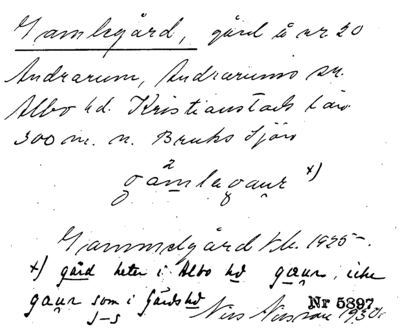 Gamlegård, gård å nr 20
Andrarum, Andrarums sn.
Albo hd. Kristianstads län
300 m. n. Bruks Sjön
2
gamlagau̯r x)
Gammelgård kb. 1925-.
x) gård heter i Albo hd gau̯r, icke
gau̯r som i Gärds hd
Nr 5897
Nils 1930.